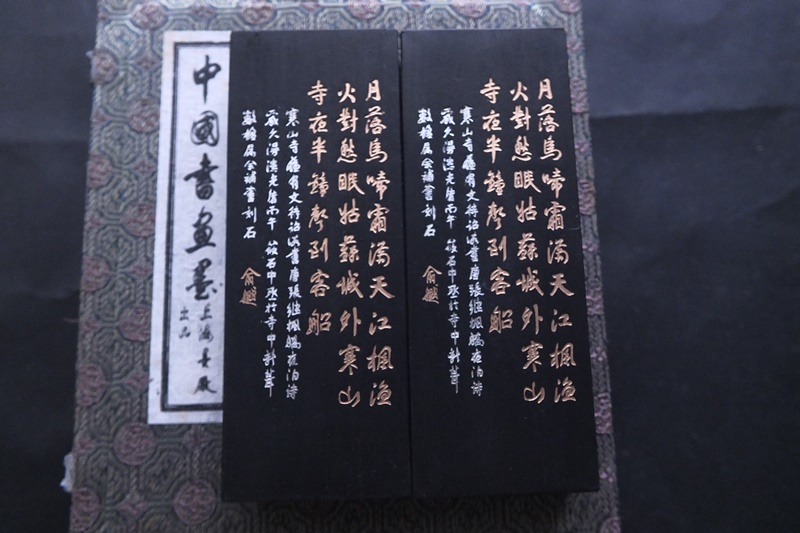 月落烏啼霜滿天江楓漁
火對愁眠姑蘇城外寒山
寺夜半鐘聲到客船
寒山寺舊有文待詔所書唐張繼楓橋夜泊詩
歲久漫漶光緒丙午筱石中丞於寺中新葺
數楹屬余補書刻石
俞樾
月落烏啼霜滿天江楓漁
火對愁眠姑蘇城外寒山
寺夜半鐘聲到客船
寒山寺舊有文待詔所書唐張繼楓橋夜泊詩
歲久漫漶光緒丙午筱石中丞於寺中新葺
數楹屬余補書刻石
俞樾
中國書畫墨
上海墨厰
出品